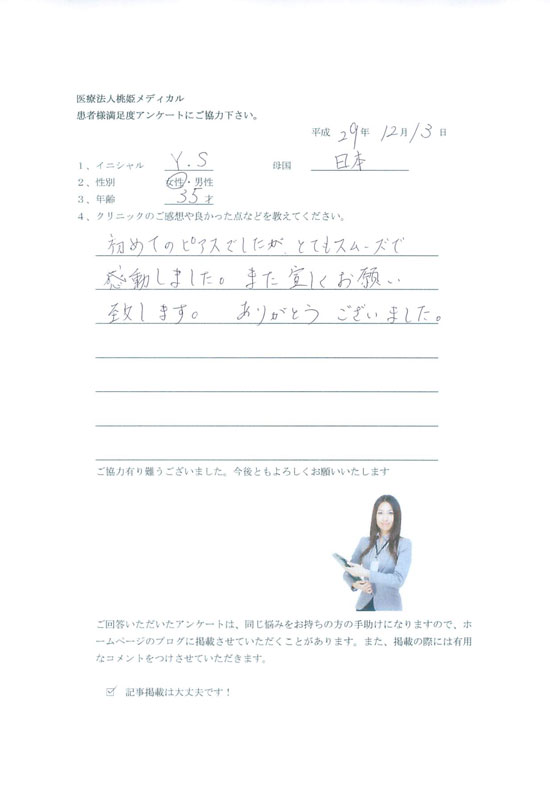 医療法人桃姫メディカル
患者様満足度アンケートにご協力下さい。
平成 29年 12月13日
1、イニシャル Y.S 母国 日本
2、性別 女性・男性
3、年齢 35才
4、クリニックのご感想や良かった点などを教えてください。
初めてのピアスでしたが、とてもスムーズで
感動しました。また宜しくお願い
致します。 ありがとうございました。
ご協力有り難うございました。今後ともよろしくお願いいたします
ご回答いただいたアンケートは、同じ悩みをお持ちの方の手助けになりますので、ホ
ームページのブログに掲載させていただくことがあります。また、掲載の際には有用
なコメントをつけさせていただきます。
☑ 記事掲載は大丈夫です！